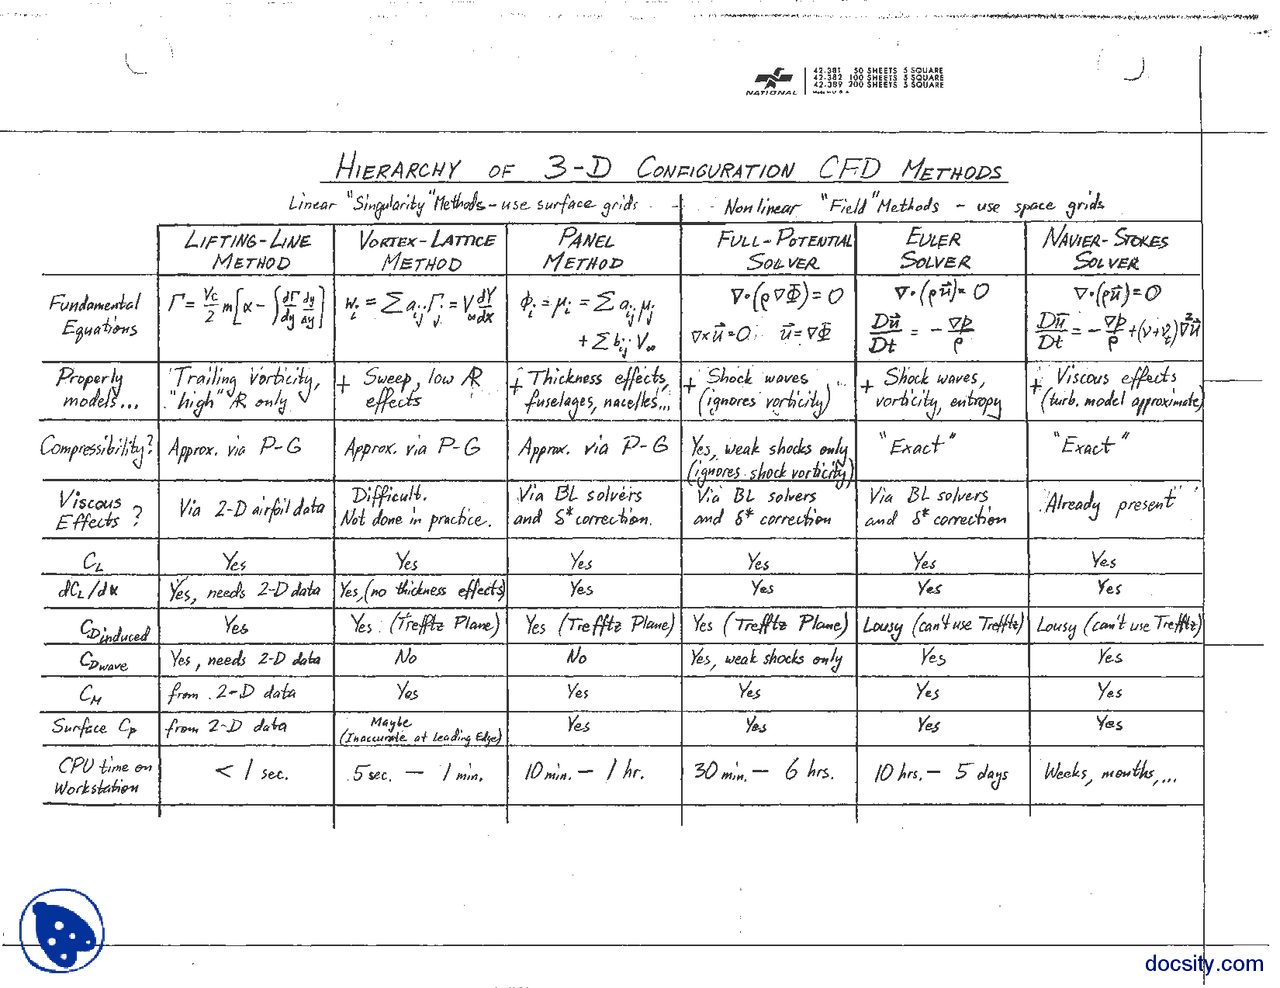 42-381 50 SHEETS 5 SQUARE
42-382 100 SHEETS 5 SQUARE
42-389 200 SHEETS 5 SQUARE
NATIONAL
HIERARCHY OF 3-D CONFIGURATION CFD METHODS
Linear "Singularity" Methods - use surface grids
Nonlinear "Field" Methods - use space grids
LIFTING-LINE METHOD
VORTEX-LATTICE METHOD
PANEL METHOD
FULL-POTENTIAL SOLVER
EULER SOLVER
NAVIER-STOKES SOLVER
Fundamental Equations
Γ = Vc/2 m[α - ∫ dΓ/dy dy/Δy]
w_i = Σ a_ij Γ_j = V∞ dY/dx
Φ_i = μ_i = Σ a_ij μ_j + Σ b_ij V∞
∇·(ρ∇Φ) = 0
∇×u⃗=0 u⃗=∇Φ
∇·(ρu⃗)= 0
Du⃗/Dt = -∇p/ρ
∇·(ρu⃗)=0
Du⃗/Dt = -∇p/ρ +(ν+ν_t)∇²u⃗
Properly models...
Trailing vorticity, "high" AR only
+ Sweep, low AR effects
+ Thickness effects, fuselages, nacelles...
+ Shock waves (ignores vorticity)
+ Shock waves, vorticity, entropy
+ Viscous effects (turb. model approximate)
Compressibility?
Approx. via P-G
Approx. via P-G
Approx. via P-G
Yes, weak shocks only (ignores shock vorticity)
"Exact"
"Exact"
Viscous Effects?
Via 2-D airfoil data
Difficult. Not done in practice.
Via BL solvers and δ* correction.
Via BL solvers and δ* correction
Via BL solvers and δ* correction
Already present
C_L
Yes
Yes
Yes
Yes
Yes
Yes
dC_L/dα
Yes, needs 2-D data
Yes, (no thickness effects)
Yes
Yes
Yes
Yes
C_D induced
Yes
Yes (Trefftz Plane)
Yes (Trefftz Plane)
Yes (Trefftz Plane)
Lousy (can't use Trefftz)
Lousy (can't use Trefftz)
C_D wave
Yes, needs 2-D data
No
No
Yes, weak shocks only
Yes
Yes
C_M
from 2-D data
Yes
Yes
Yes
Yes
Yes
Surface C_p
from 2-D data
Maybe (Inaccurate at Leading Edge)
Yes
Yes
Yes
Yes
CPU time on Workstation
< 1 sec.
5 sec. — 1 min.
10 min. — 1 hr.
30 min. — 6 hrs.
10 hrs. — 5 days
Weeks, months,...
docsity.com